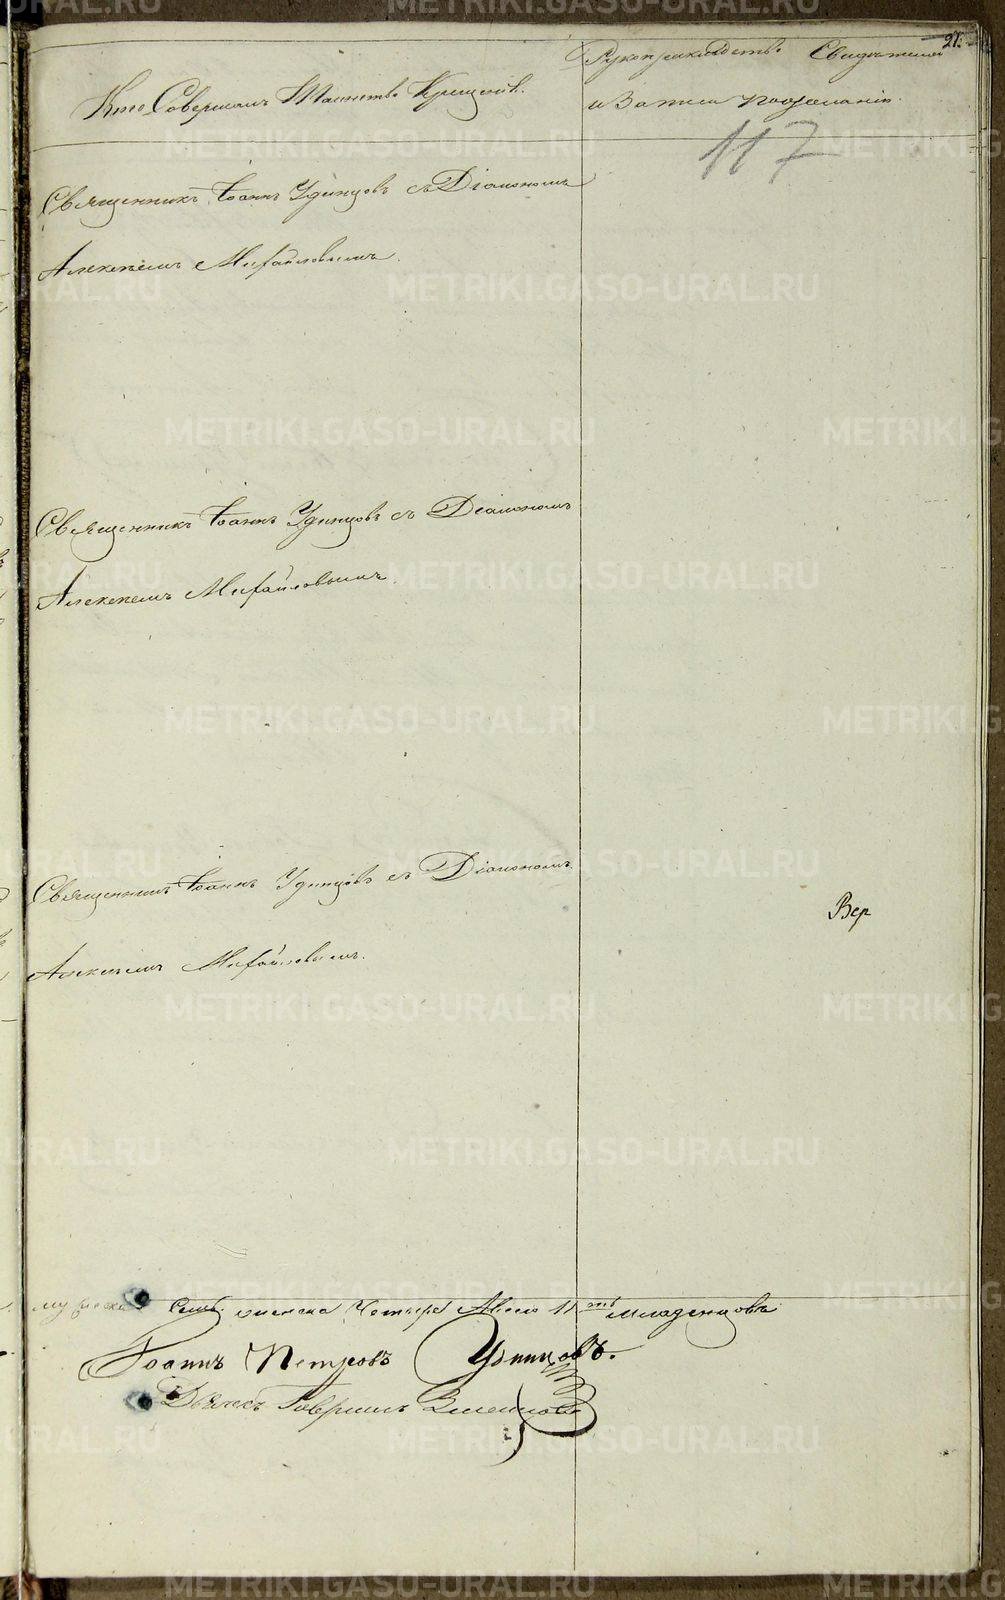 21.
Кто Совершалъ Таинство Крещенія.
Рукоприкладство Свидѣтелей
и Записи по желанію.
117
Священникъ Іоаннъ Удинцовъ съ Діакономъ
Алексѣемъ Михайловымъ.
Священникъ Іоаннъ Удинцовъ съ Діакономъ
Алексѣемъ Михайловымъ.
Священникъ Іоаннъ Удинцовъ съ Діакономъ
Алексѣемъ Михайловымъ.
Вер
мужеска Семь женска Четыре Всего 11ть младенцовъ
Іоаннъ Петровъ Удинцовъ.
Дьячекъ Гавріилъ
METRIKI.GASO-URAL.RU